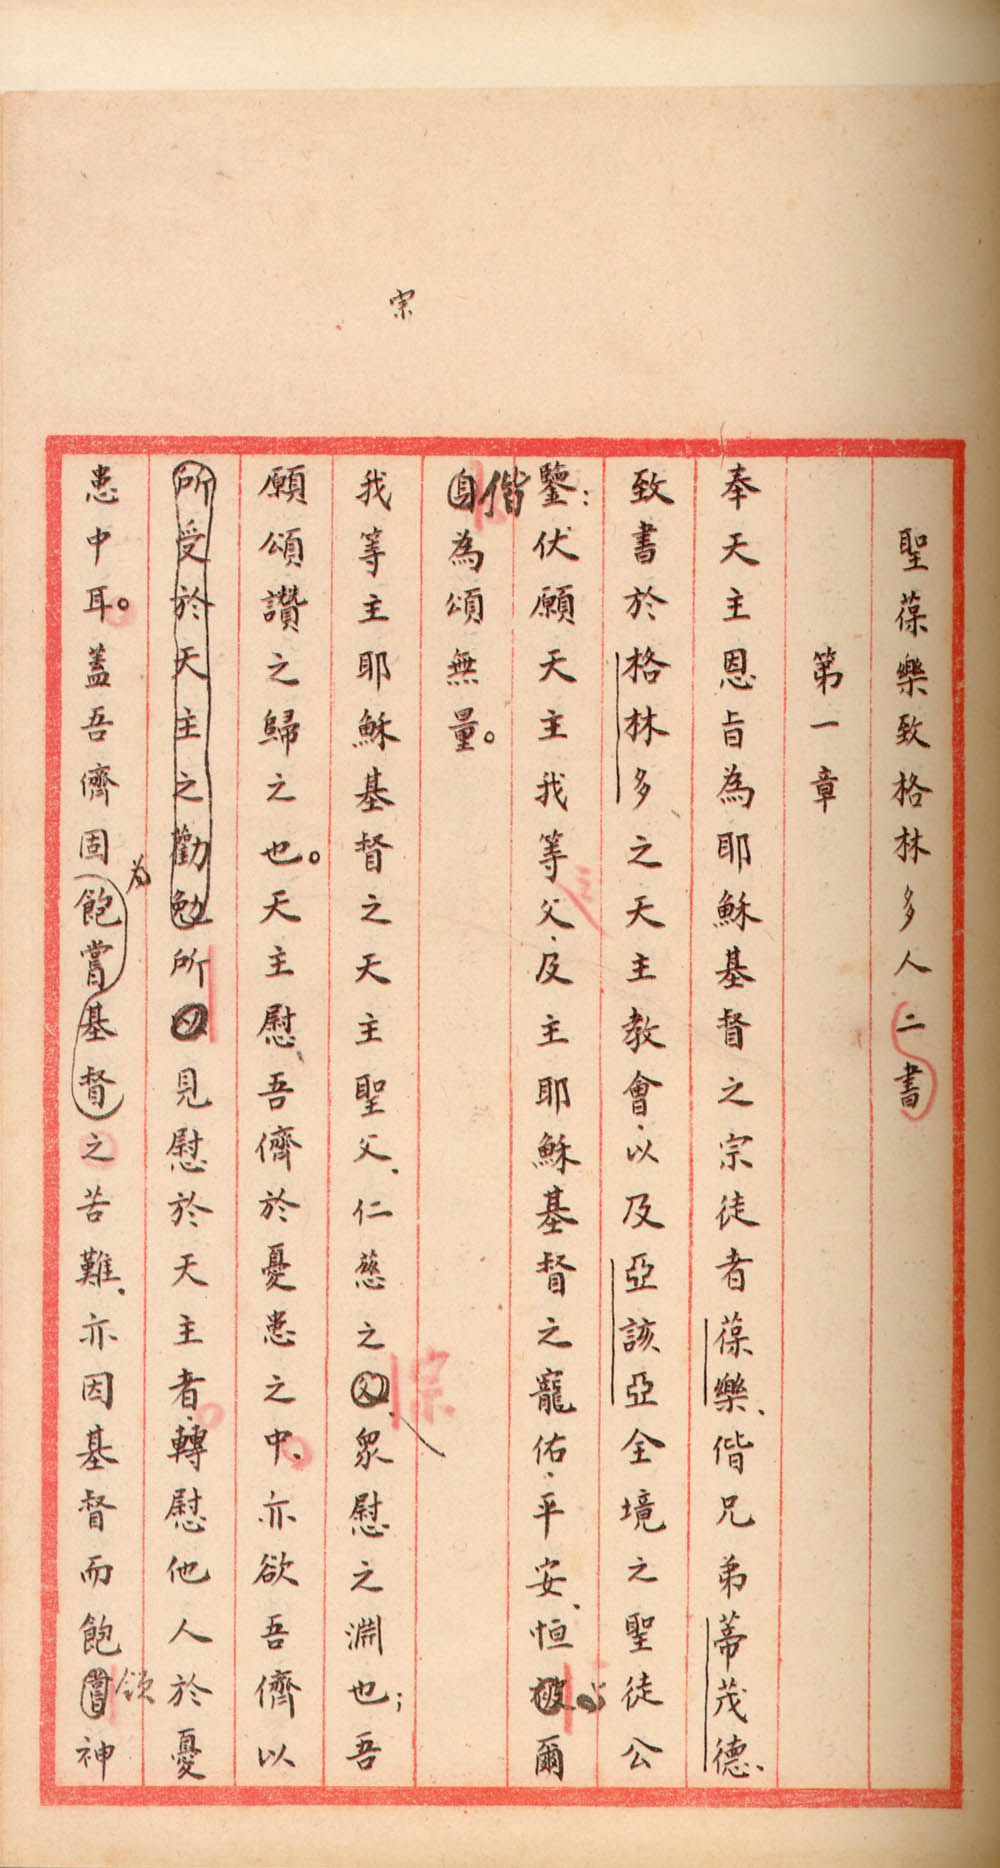 宗
聖葆樂致格林多人二書
第一章
奉天主恩旨為耶穌基督之宗徒者葆樂、偕兄弟蒂茂德、
致書於格林多之天主教會、以及亞該亞全境之聖徒公
鑒：伏願天主我等父、及主耶穌基督之寵佑、平安、恒被爾
偕
自為頌無量。
我等主耶穌基督之天主聖父、仁慈之父、眾慰之淵也；吾
宗
願頌讚之歸之也。天主慰吾儕於憂患之中、亦欲吾儕以
所受於天主之勸勉所以見慰於天主者、轉慰他人於憂
患中耳。蓋吾儕固飽嘗基督之苦難、亦因基督而飽嘗神
為
領